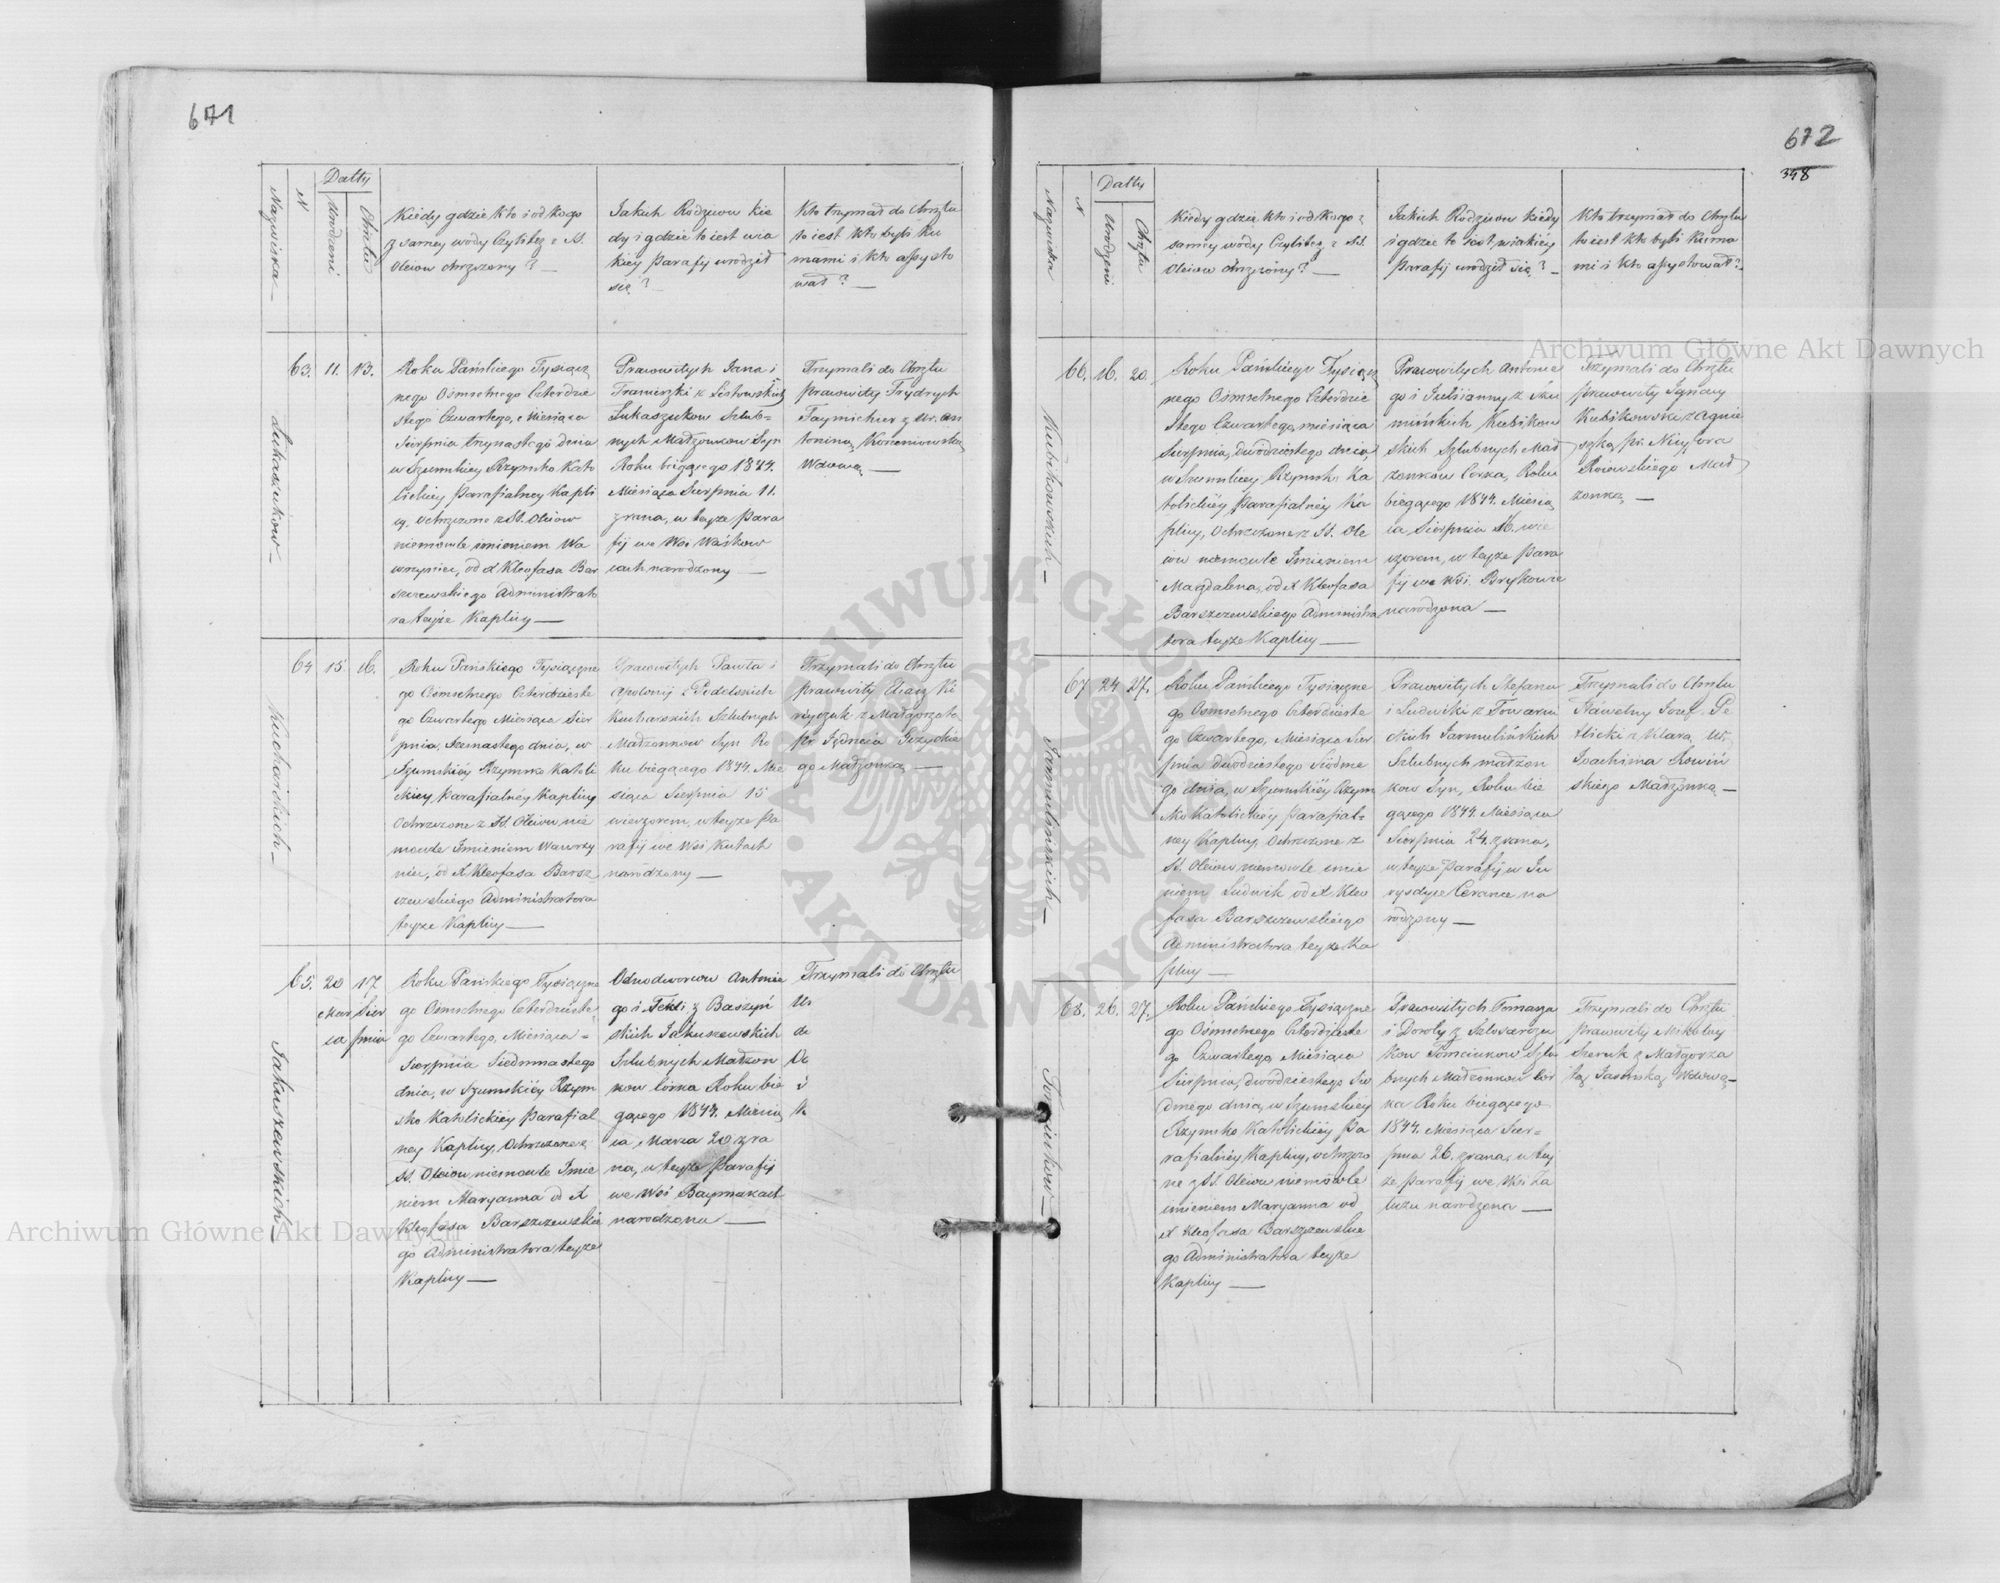 671
Datty
Nazwiska
N
Urodzeni
Chrztu
Kiedy gdzie kto i od kogo
z samey wody Czyliteż z SS.
Oleiow chrzczony? —
Jakich Rodziców kie
dy i gdzie to iest w ia
kiey Parafij urodził
się? —
Kto trzymał do Chrztu
to iest kto byli Ku
mami i kto assysto
wał? —
Łukaszukow —
63. 11. 13.
Roku Pańskiego Tysiącz
nego Osmsetnego Czterdzie
stego Czwartego, Miesiąca
Sierpnia trzynastego dnia
w Szumskiey Rzymsko Kato
lickiey Parafialney Kapli
cy, ochrzczone z SS. Oleiow
niemowle imieniem Wa
wrzyniec, od X Kleofasa Bar
szczewskiego Administrato
ra teyże Kaplicy —
Prawowitych Jana i
Franciszki z
Łukaszukow Szlub=
nych Małżonkow Syn
Roku bieżącego 1844.
Miesiąca Sierpnia 11.
zrana, w teyże Para
fij we Wsi Waśkow
cach narodzony —
Trzymali do Chrztu
prawowity Frydrych
z Ur. An
toniną Korzeniowską
Wdową —
Kucharskich —
64 15 16.
Roku Pańskiego Tysiączne
go Osmsetnego Czterdzieste
go Czwartego Miesiąca Sier
pnia, Szesnastego dnia, w
Szumskiéy Rzymsko Katoli
ckiey, Parafialnéy Kaplicy
Ochrzczone z SS. Oleiow nie
mowle Imieniem Wawrzy
niec, od X Kleofasa Barsz
czewskiego Administratora
teyże Kaplicy —
Prawowitych Pawła i
Apolonij z Podolskich
Kucharskich Szlubnych
Małżonkow Syn Ro
ku bieżącego 1844. Mie
siąca Sierpnia 15
wieczorem, w teyże Pa
rafij we Wsi Kutach
narodzony —
Trzymali do Chrztu
prawowity Eliasz Ki
ryczuk z Małgorzatą
pr. Jędrzeia Giżyckie
go Małżonką —
Jakuszewskich —
65. 20 17
Mar Sier
ca pnia
Roku Pańskiego Tysiączne
go Osmsetnego Czterdzieste
go Czwartego, Miesiąca =
Sierpnia Siedmnastego
dnia, w Szumskiéy Rzym
sko Katolickiéy Parafial
ney Kaplicy, Ochrzczone z
SS. Oleiow niemowle Imie
niem Maryanna od X
Kleofasa Barszczewskie
go Administratora teyże
Kaplicy —
Odnodworcow Antonie
go i Tekli z Baszyń
skich Jakuszewskich
Szlubnych Małżon
kow Córka Roku bie
żącego 1844. Miesią
ca, Marca 20. zra
na, w teyże Parafij
we Wsi Baymakach
narodzona —
Trzymali do Chrztu
672
348
Datty
Nazwiska
N
Urodzeni
Chrztu
Kiedy gdzie kto i od kogo z
samey wody Czyliteż z SS.
Oleiow chrzczony? —
Jakich Rodziców kiedy
i gdzie to iest w iakiéy
Parafij urodził się? —
Kto trzymał do Chrztu
to iest kto byli Kuma
mi i kto assystował? —
Kubikowskich —
66. 16. 20.
Roku Pańskiego Tysiącz
nego Osmsetnego Czterdzie
stego Czwartego, miesiąca
Sierpnia, dwódziestego dnia,
w Szumskiey Rzymsko Ka
tolickiéy Parafialnéy Ka
plicy, Ochrzczone z SS. Ole
iow niemowle Imieniem
Magdalena, od X Kleofasa
Barszczewskiego Administra
tora teyże Kaplicy —
Prawowitych Antonie
go i Julianny z Sku
mińskich Kubikow
skich Szlubnych Mał
żonków Corka, Roku
bieżącego 1844. Miesią
ca Sierpnia 16. wie
czorem, w teyże Para
fij we Wsi. Brykowie
narodzona —
Trzymali do Chrztu
prawowity Ignacy
Kubikowski z Agnie
szką, pr. Nicyfora
Roiowskiego Mał
żonką —
Jarmulińskich —
67 24 27.
Roku Pańskiego Tysiączne
go Osmsetnego Czterdzieste
go Czwartego, Miesiąca Sier
pnia dwodziestego Siódme
go dnia, w Szumskiéy Rzym
sko Katolickiéy Parafial=
ney Kaplicy, Ochrzczone z
SS. Oleiow niemowle imie
niem Ludwik od X Kleo
fasa Barszczewskiego
Administratora teyże Ka
plicy —
Prawowitych Stefana
i Ludwiki z Towarni
ckich Jarmulińskich
Szlubnych małżon
kow Syn, Roku bie
żącego 1844. Miesiąca
Sierpnia 24. zrana,
w teyże Parafij w Ju
rysdyce Cerance na
rodzony —
Trzymali do Chrztu
Sławetny Jozef Pe
tlicki z Klarą, Ur.
Joachima Rowiń
skiego Małżonką —
Tomciukow —
68. 26. 27.
Roku Pańskiego Tysiączne
go Osmsetnego Czterdzieste
go Czwartego, Miesiąca
Sierpnia, dwódziestego Sió
dmego dnia, w Szumskiey
Rzymsko Katolickiéy Pa
rafialnéy Kaplicy, ochrzczo
ne z SS. Oleiow niemowle
imieniem Maryanna od
X Kleofasa Barszczewskie
go Administratora teyże
Kaplicy —
Prawowitych Tomasza
i Doroty z Szlusarczu
kow Tomciukow Szlu
bnych Małżonkow Cor
ka Roku bieżącego
1844. Miesiąca Sier=
pnia 26. zrana, w tey
że parafij we Wsi Za
łużu narodzona —
Trzymali do Chrztu
prawowity Mikołay
Szewczuk z Małgorza
tą Jasińską Wdową —
Archiwum Główne Akt Dawnych
Archiwum Główne Akt Dawnych
ARCHIWUM GŁÓWNE AKT DAWNYCH